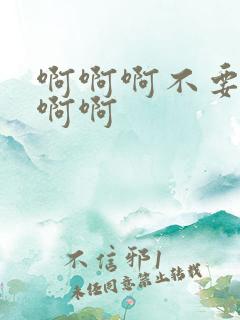 啊啊啊不要
啊啊
不信邪1
未经同意禁止转载